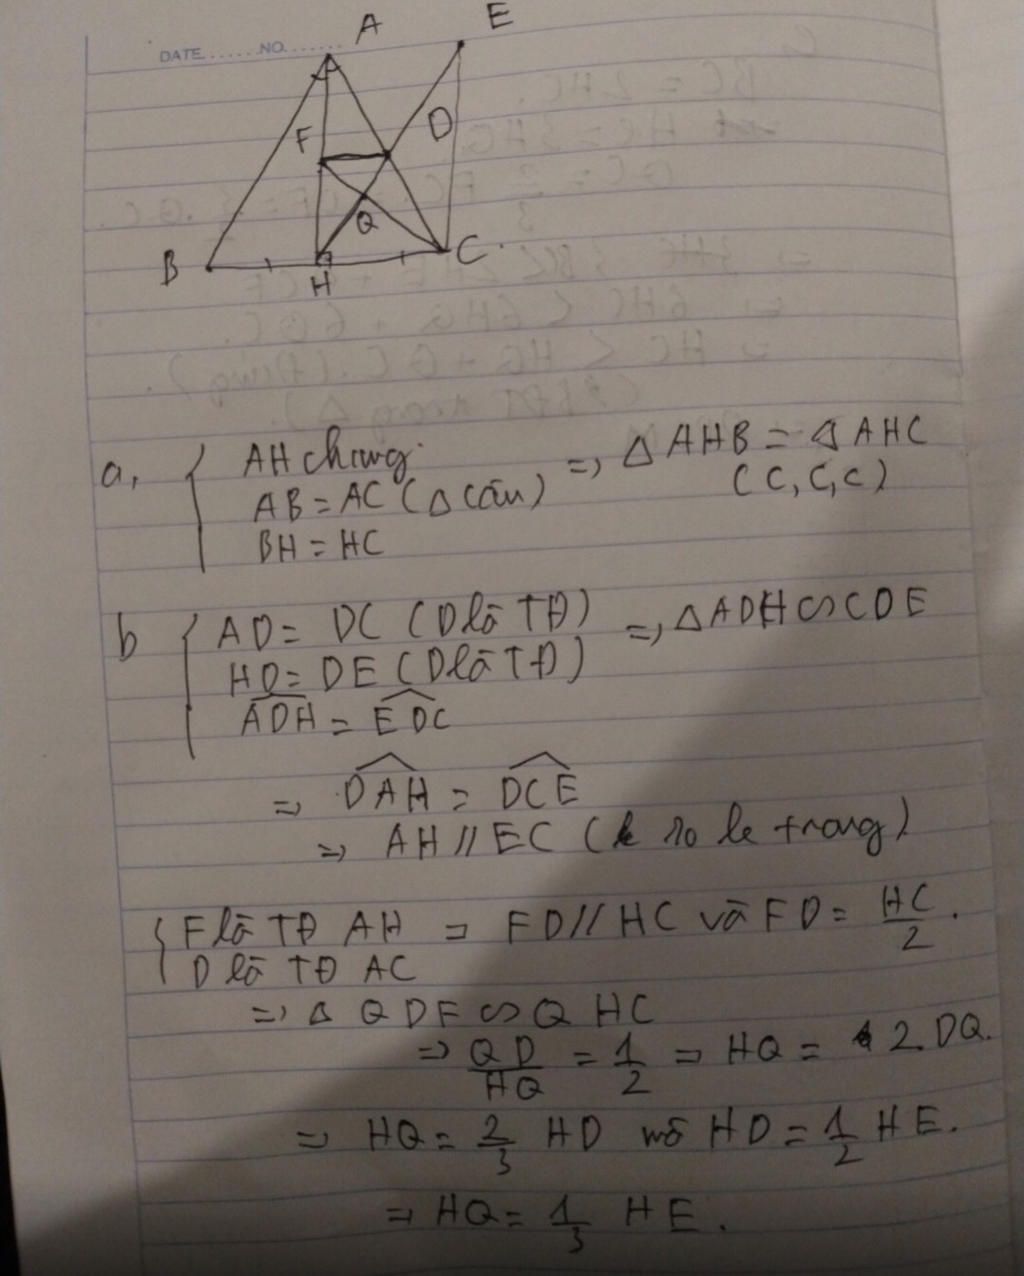 DATE......NO.......
A
E
F
D
Q
B
H
C
a, AH chung
AB = AC (Δ cân)
BH = HC
=> Δ AHB = Δ AHC
(C, C, C)
b AD = DC (D là TĐ)
HD = DE (D là TĐ)
ADH = EDC
=> Δ ADH ∽ CDE
=> DAH = DCE
=> AH // EC (so le trong)
F là TĐ AH
D là TĐ AC
= FD // HC và FD = HC/2.
=> Δ QDF ∽ Q HC
=> QD/HQ = 1/2 = HQ = 2.DQ.
=> HQ = 2/3 HD mà HD = 1/2 HE.
=> HQ = 1/3 HE.